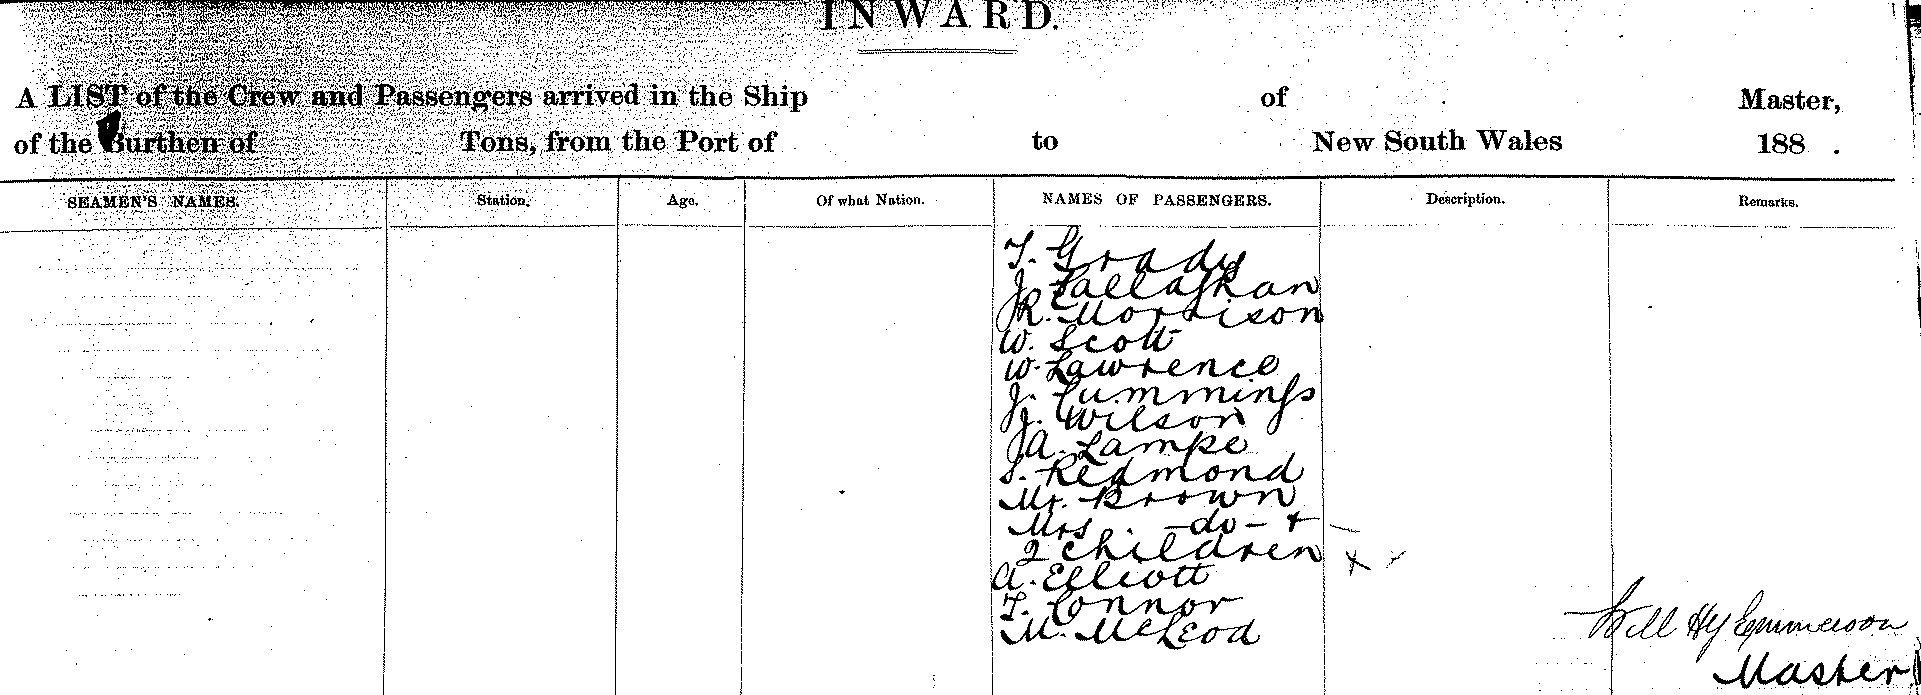 INWARD.
A LIST of the Crew and Passengers arrived in the Ship of Master,
of the Burthen of Tons, from the Port of to New South Wales 188 .
SEAMEN'S NAMES. Station. Age. Of what Nation. NAMES OF PASSENGERS. Description. Remarks.
T. Grady
J. Callaghan
JR. Morrison
W. Scott
W. Lawrence
J. Cummings
J. Wilson
JA. Lampe
S. Redmond
Mr. Brown
Mrs. -do- +
2 children
A. Elliott
T. Connor
M. McLeod
Will Hy Emmerson
Master